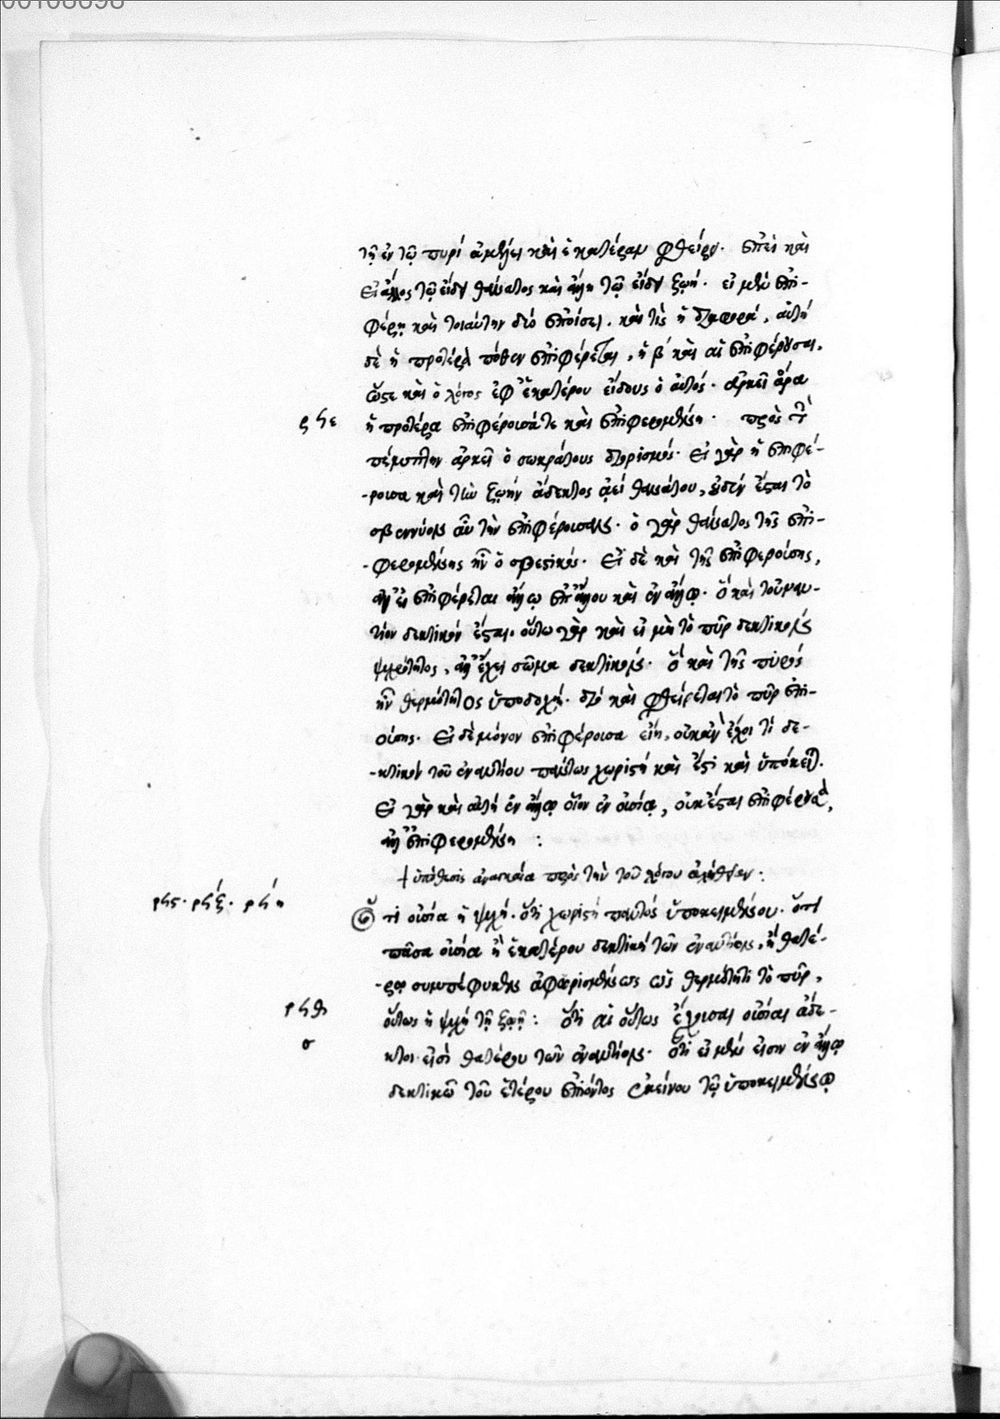 τῆ ἐν τῶ πυρί ἀμήχει καὶ ἑκατέραν φθείρει. ἐπεὶ καὶ
εἰ ἄλλος τῶ εἴδει θάνατος καὶ ἄλλη τῶ εἴδει ζωή. εἰ μὲν ἐπι-
φέρη καὶ τοιαύτην διὸ ἐποίσει. καὶ τίς ἡ διαφορά, αὐτὴ
δὲ ἡ προτέρα πόθεν ἐπιφέρεται, ἡ β΄ καὶ αἱ ἐπιφέρουσαι.
ὥστε καὶ ὁ λόγος ἐφ' ἑκατέρου εἴδους ὁ αὐτός. ἀρκεῖ ἄρα
ἡ προτέρα ἐπιφέρουσά τε καὶ ἐπιφερομένη. πρὸς
πέμπτην ἀρκεῖ ὁ σωκράτους διορισμός. εἰ γὰρ ἡ ἐπιφέ-
-ρουσα καὶ τὴν ζωὴν ἄδεκτος ἀεί θανάτου, οὐδὲν ἔσται τὸ
σβεννύον αὖ τὴν ἐπιφέρουσαν. ὁ γὰρ θάνατος τῆς ἐπι-
-φερομένης ἦν ὁ σβεστικός. εἰ δὲ καὶ τῆς ἐπιφερούσης,
ἀλλ' εἰ ἐπιφέρεται ἄλλω ἐπ' ἄλλου καὶ ἐν ἄλλω. ὃ καὶ τοὐναν-
τίον δεκτικόν ἔσται. οὕτω γὰρ καὶ εἰ μὴ τὸ πῦρ δεκτικὸν
ψυχρότητος, ἀλλ' ἔχει σῶμα δεκτικὸν. ὃ καὶ τῆς πυρὸς
ἦν θερμότητος ὑποδοχή. διὸ καὶ φθείρεται τὸ πῦρ ἐπι-
ούσης. εἰ δὲ μόνον ἐπιφέρουσα εἴη, οὐκ ἂν ἔχοι τί δε-
-κτικὸν τοῦ ἐναντίου παντὸς χωριστὴ καὶ ἔστι καὶ ὑπόκειται.
εἰ γὰρ καὶ αὐτὴ ἐν ἄλλω οἷον ἐν οὐσία, οὐκ ἔσται ἐπιφέρουσα,
ἀλλ' ἐπιφερομένη :
+ ὑπόθεσις ἀναγκαία πρὸς τὴν τοῦ λόγου ἀλήθειαν :
ὅτι οὐσία ἡ ψυχή. ὅτι χωριστὴ παντὸς ὑποκειμένου. ὅτι
πᾶσα οὐσία ἢ ἑκατέρου δεκτικὴ τῶν ἐναντίων, ἢ θατέ-
-ρω συμπέφυκεν ἀφωρισμένως ὡς θερμότητι τὸ πῦρ,
οὕτως ἡ ψυχὴ τῆ ζωῆ : ὅτι αἱ οὕτως ἔχουσαι οὐσίαι ἄδε-
κτοι εἰσὶ θατέρου τῶν ἐναντίων. ὅτι εἰ μὲν εἰσιν ἐν ἄλλω
δεκτικῶ τοῦ ἑτέρου ἐπιόντος ἐκείνου τῶ ὑποκειμένω